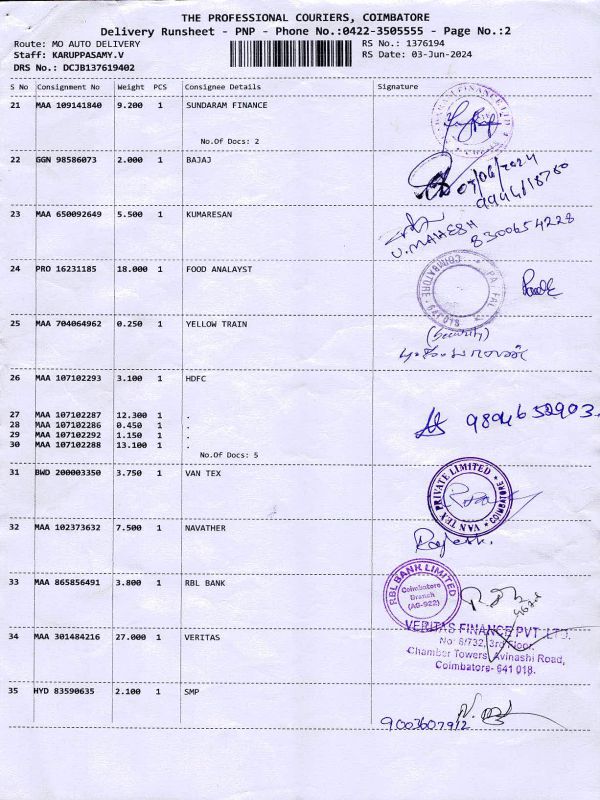 THE PROFESSIONAL COURIERS, COIMBATORE
Delivery Runsheet - PNP - Phone No.:0422-3505555 - Page No.:2
Route: MO AUTO DELIVERY RS No.: 1376194
Staff: KARUPPASAMY.V RS Date: 03-Jun-2024
DRS No.: DCJB137619402
S No Consignment No Weight PCS Consignee Details Signature
21 MAA 109141840 9.200 1 SUNDARAM FINANCE
No.Of Docs: 2
22 GGN 98586073 2.000 1 BAJAJ
9944118760
23 MAA 650092649 5.500 1 KUMARESAN
U. MAHESH 8300654228
24 PRO 16231185 18.000 1 FOOD ANALAYST
COIMBATORE - 641 018
25 MAA 704064962 0.250 1 YELLOW TRAIN
(Security)
26 MAA 107102293 3.100 1 HDFC
27 MAA 107102287 12.300 1 .
28 MAA 107102286 0.450 1 .
29 MAA 107102292 1.150 1 .
30 MAA 107102288 13.100 1 .
No.Of Docs: 5
31 BWD 200003350 3.750 1 VAN TEX
VAN TEX PRIVATE LIMITED
COIMBATORE
32 MAA 102373632 7.500 1 NAVATHER
33 MAA 865856491 3.800 1 RBL BANK
RBL BANK LIMITED
Coimbatore
Branch
(AG-922)
34 MAA 301484216 27.000 1 VERITAS
VERITAS FINANCE PVT. LTD.
No: 6/732, 3rd Floor,
Chamber Towers, Avinashi Road,
Coimbatore- 641 018.
35 HYD 83590635 2.100 1 SMP
9003607912